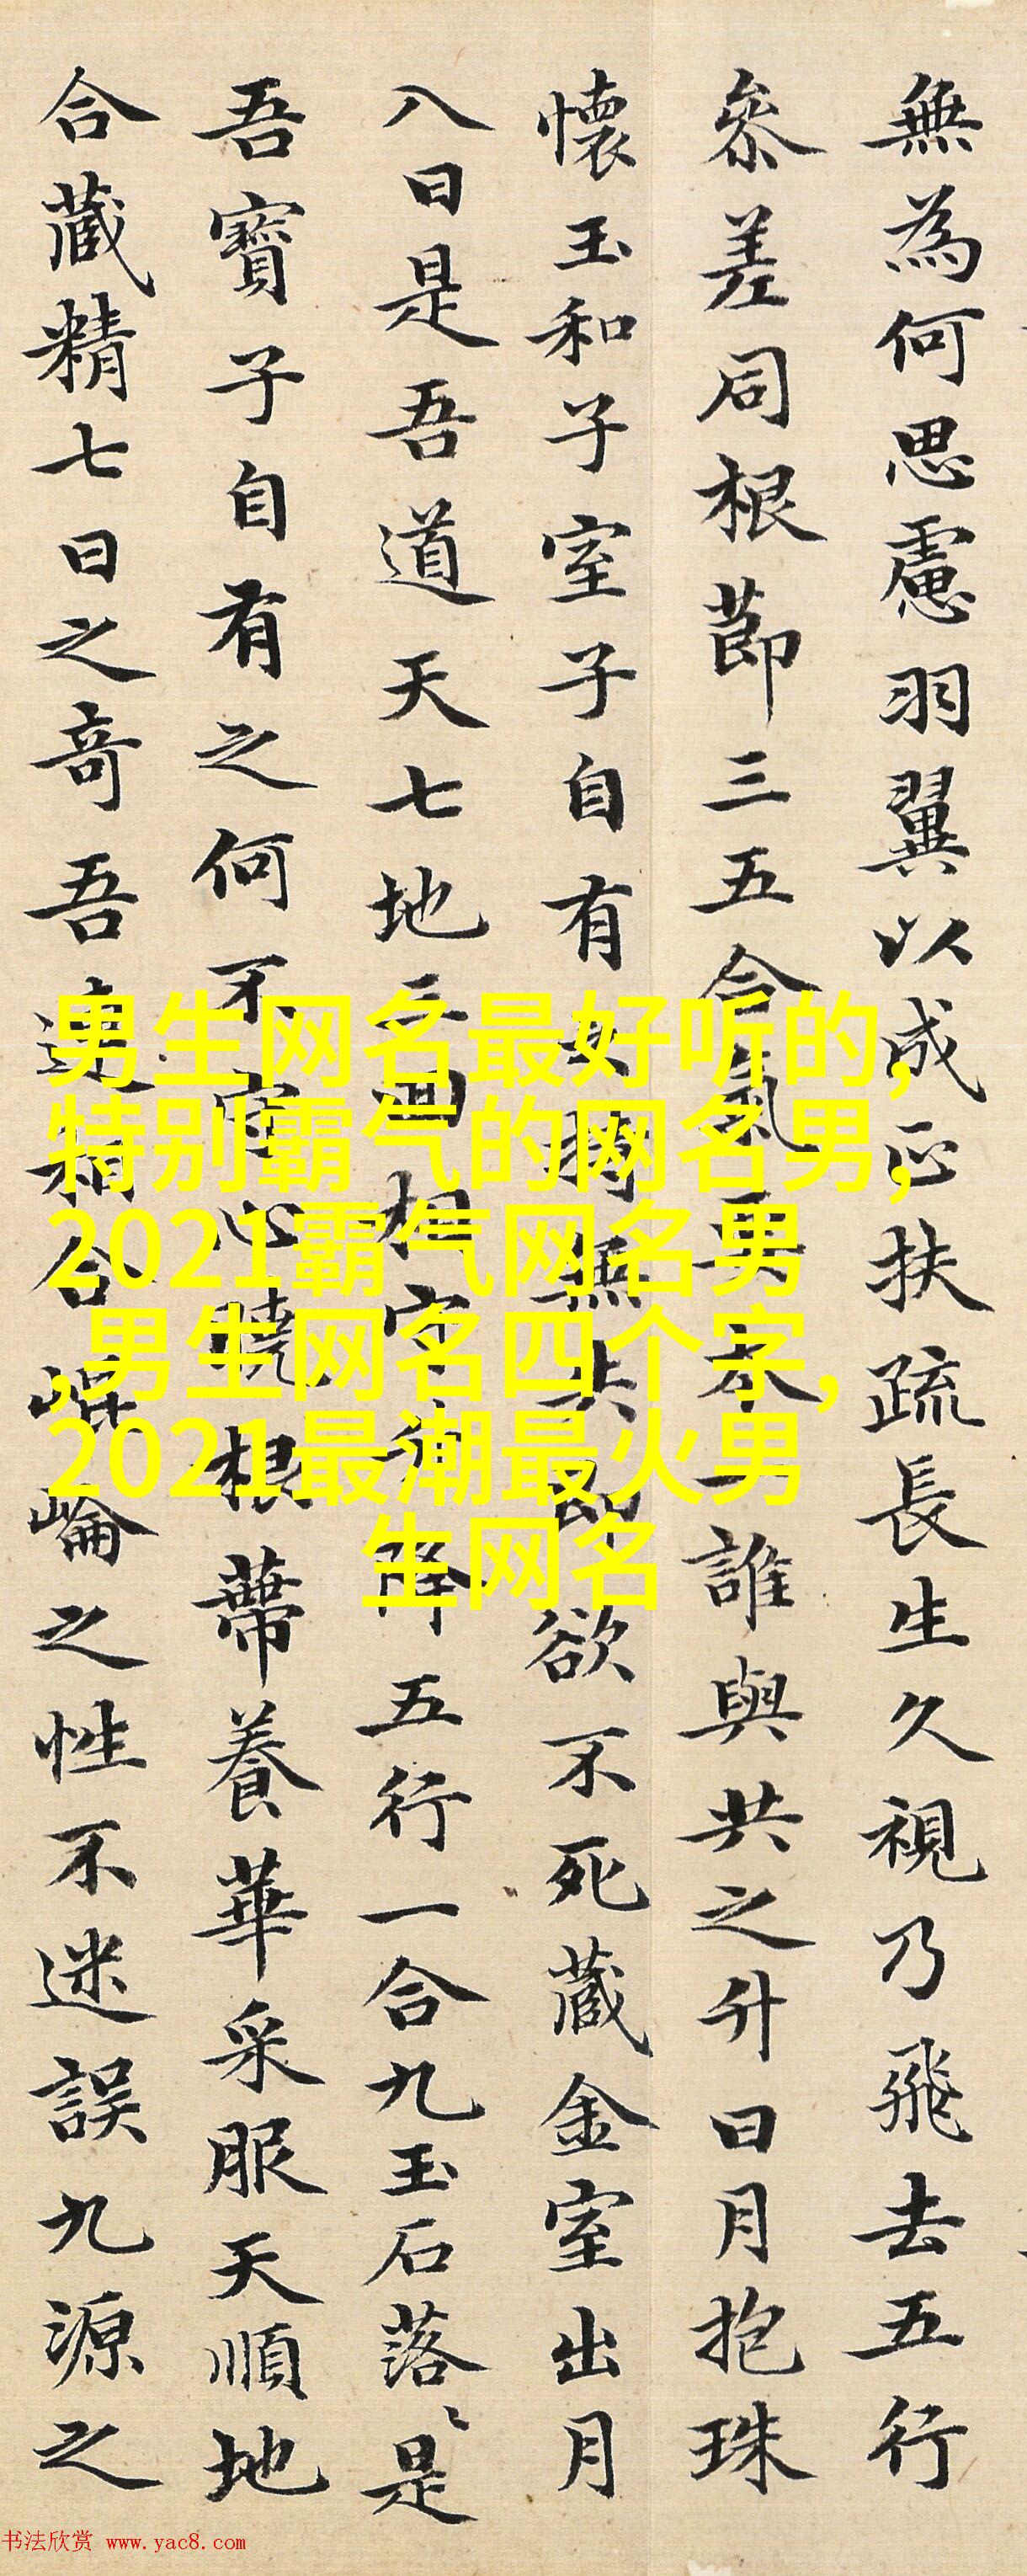 無為何思慮羽翼以成正扶疏長生久視乃飛去五行
參差同根節三五合氣要本一誰與共之升日月抱珠
懷玉和子室子自有持無失即欲不死藏金室出月
八日是吾道天七地三迴相守升降五行一合九玉石落〻是
吾寶子自有之何不守心曉根蔕養華采服天順地
合藏精七日之奇吾連相合崐崘之性不迷誤九源之
男生网名最好听的,
特别霸气的网名男,
2021霸气网名男
,男生网名四个字,
2021最潮最火男
生网名
书法欣赏 www.yac8.com